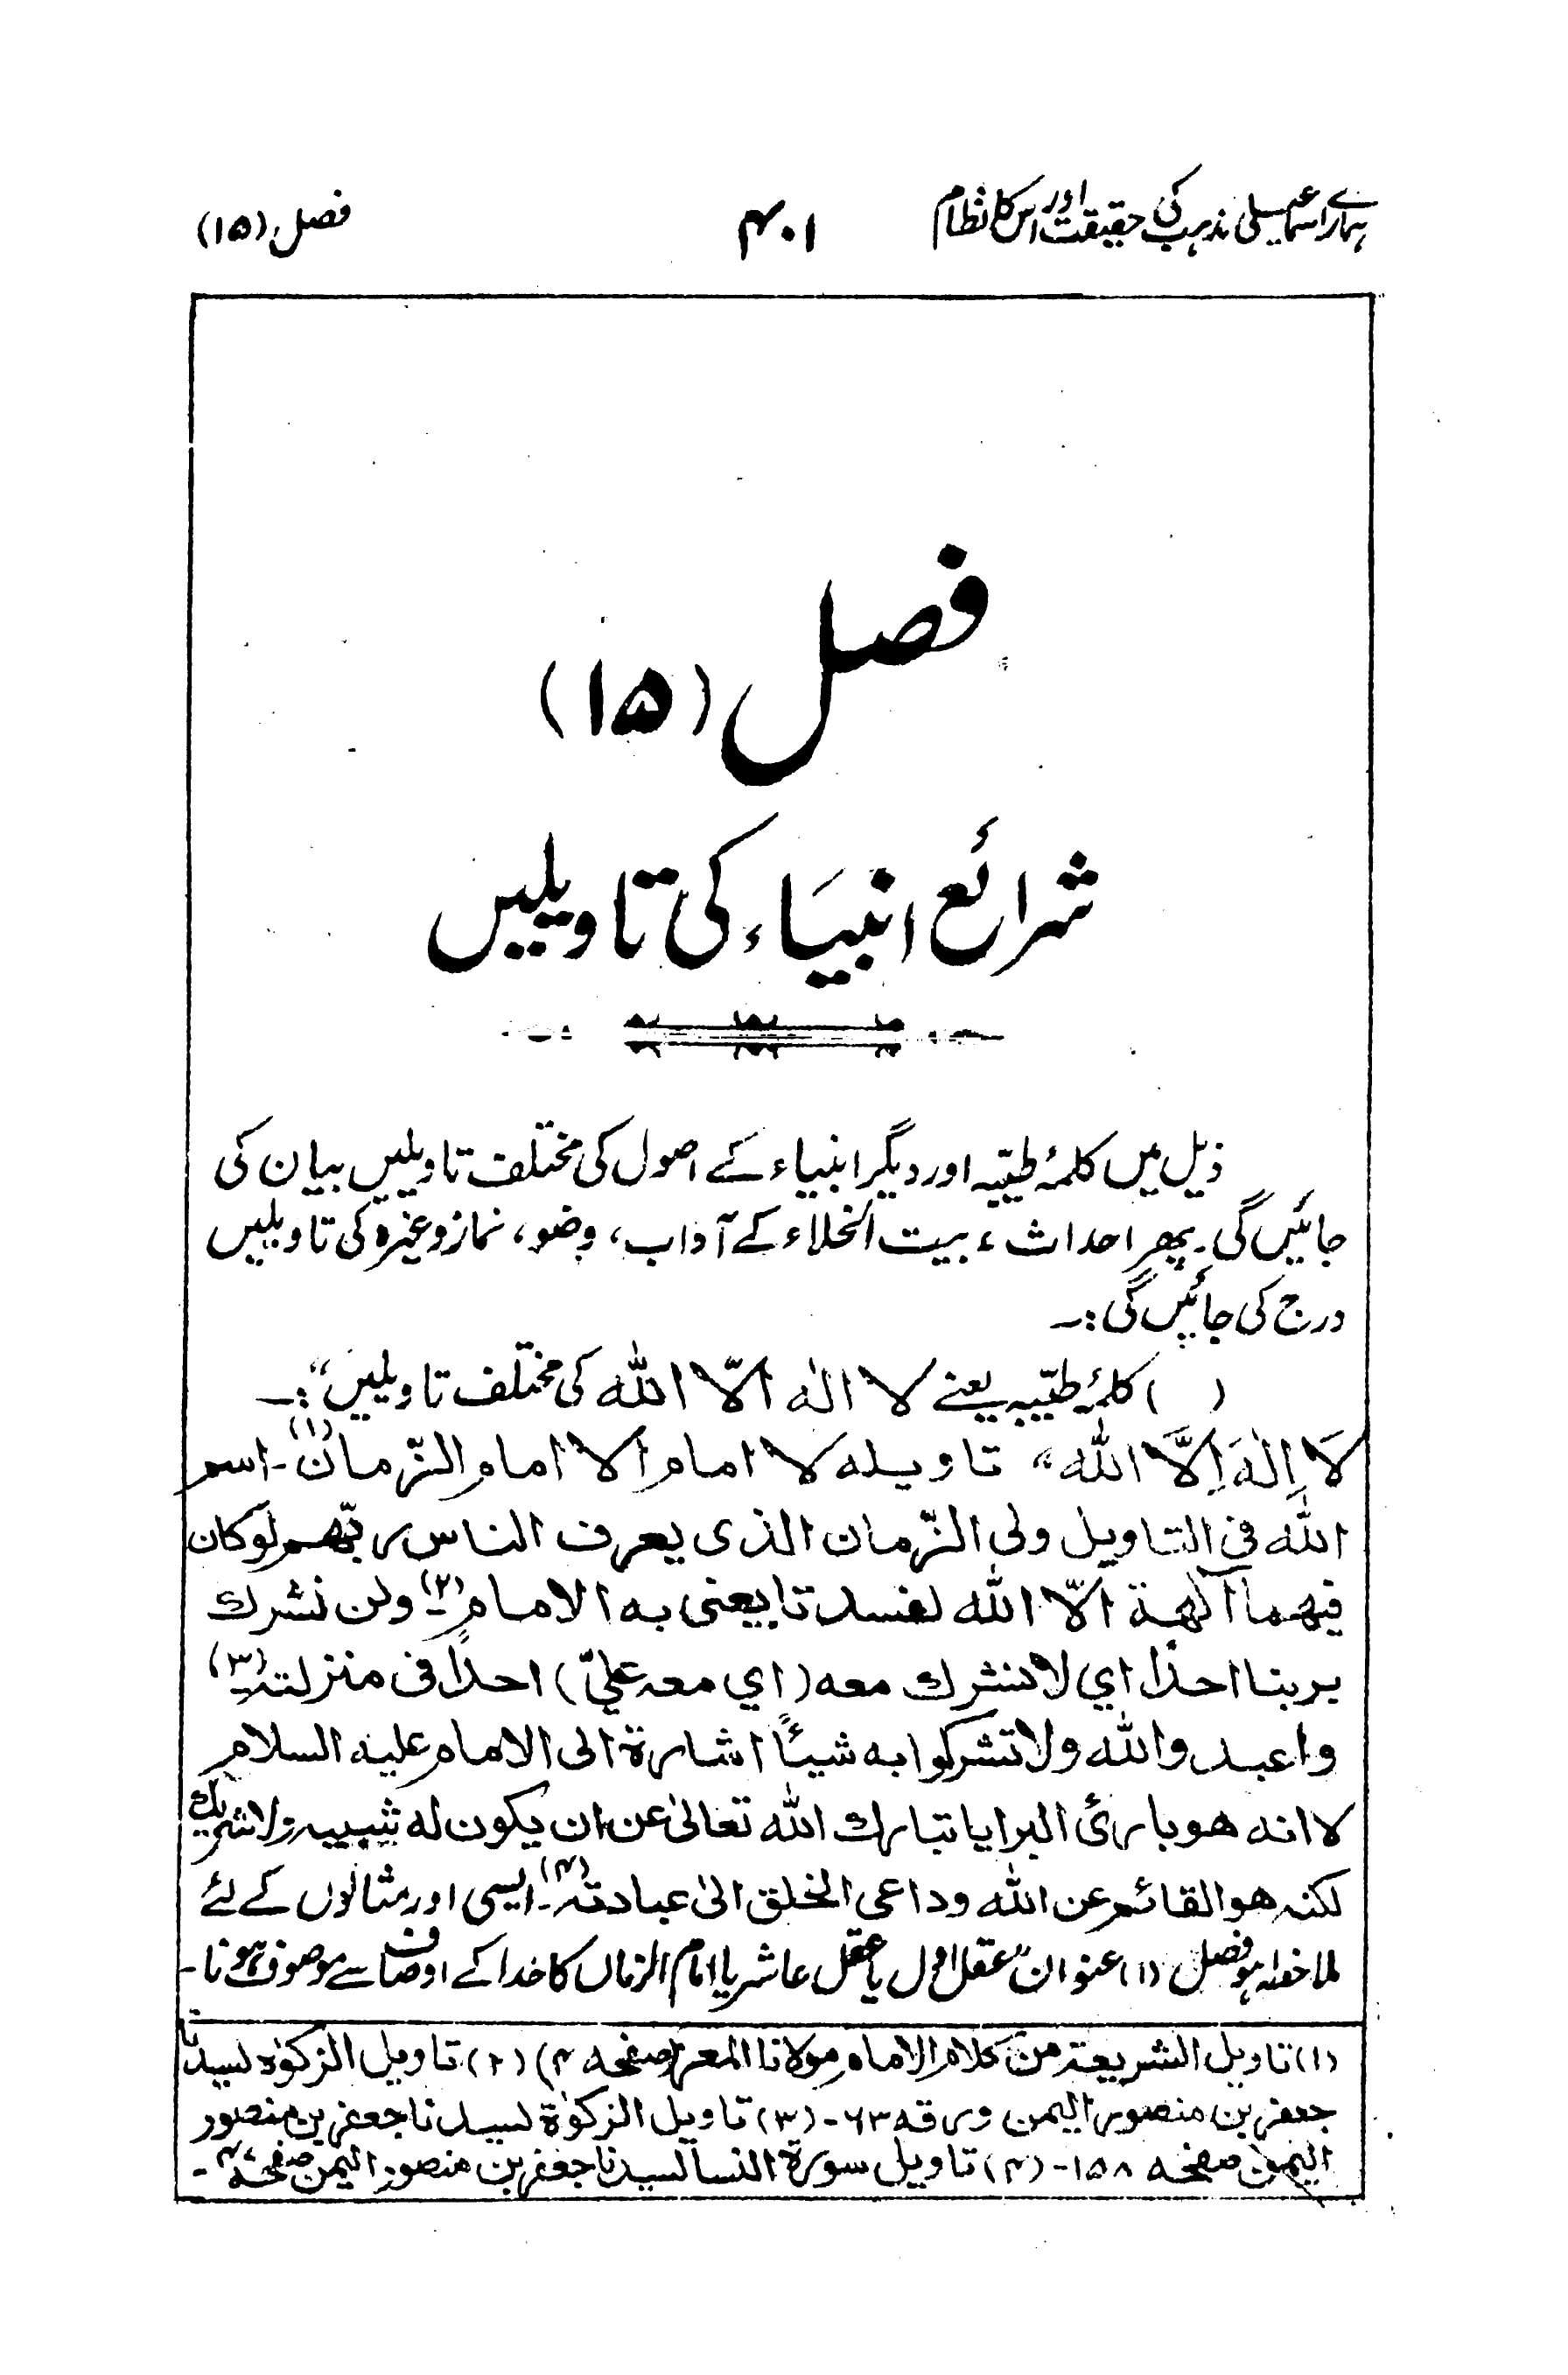 ہمارے اسماعیلی مذہب کی حقیقت اور اس کا نظام ۴۰۱ فصل (۱۵)
فصل (۱۵)
شرائع انبیاء کی تاویلیں
ذیل میں کلمۂ طیّبہ اور دیگر انبیاء کے اصول کی مختلف تاویلیں بیان کی
جائیں گی۔ پھر احداث، بیت الخلاء کے آداب، وضو، نماز وغیرہ کی تاویلیں
درج کی جائیں گی:۔
( ) کلمۂ طیّبہ یعنے لا الٰہ الّا اللہ کی مختلف تاویلیں“:۔
لَا اِلٰهَ اِلَّا اللّٰه“ تاويله لا امام الا امام الزّمان(۱)۔ اسم
اللّٰه فى التاويل ولى الزّمان الذى يعرف الناس ربّهم لوكان
فيهما آلهة الّا اللّٰه لفسدتا يعنى به الامام(۲)۔ ولن نشرك
بربنا احدًا اي لا نشرك معه (اي معه عليّ) احدًا فى منزلته(۳)
واعبدوا اللّٰه ولا تشركوا به شيئًا اشارة الى الامام عليه السلام
لا انه هو بارئ البرايا تبارك اللّٰه تعالىٰ عن ان يكون له شبيه ولا شريك
لكنه هو القائم عن اللّٰه وداعى الخلق الىٰ عبادته(۴)۔ ایسی اور مثالوں کے لئے
ملاحظہ ہو فصل (۱) عنوان ”عقل اول یا عقل عاشر یا امام الزماں کا خدا کے اوصاف سے موصوف ہونا۔
(۱) تاويل الشريعة من كلام الامام مولانا المعز (صفحہ ۴) (۲) تاويل الزكوٰة لسيدنا
جعفر بن منصور اليمن ورقہ ۶۳۔ (۳) تاويل الزكوٰة لسيدنا جعفر بن منصور
اليمن صفحہ ۱۵۸۔ (۴) تاويل سورة النسا لسيدنا جعفر بن منصور اليمن صفحہ